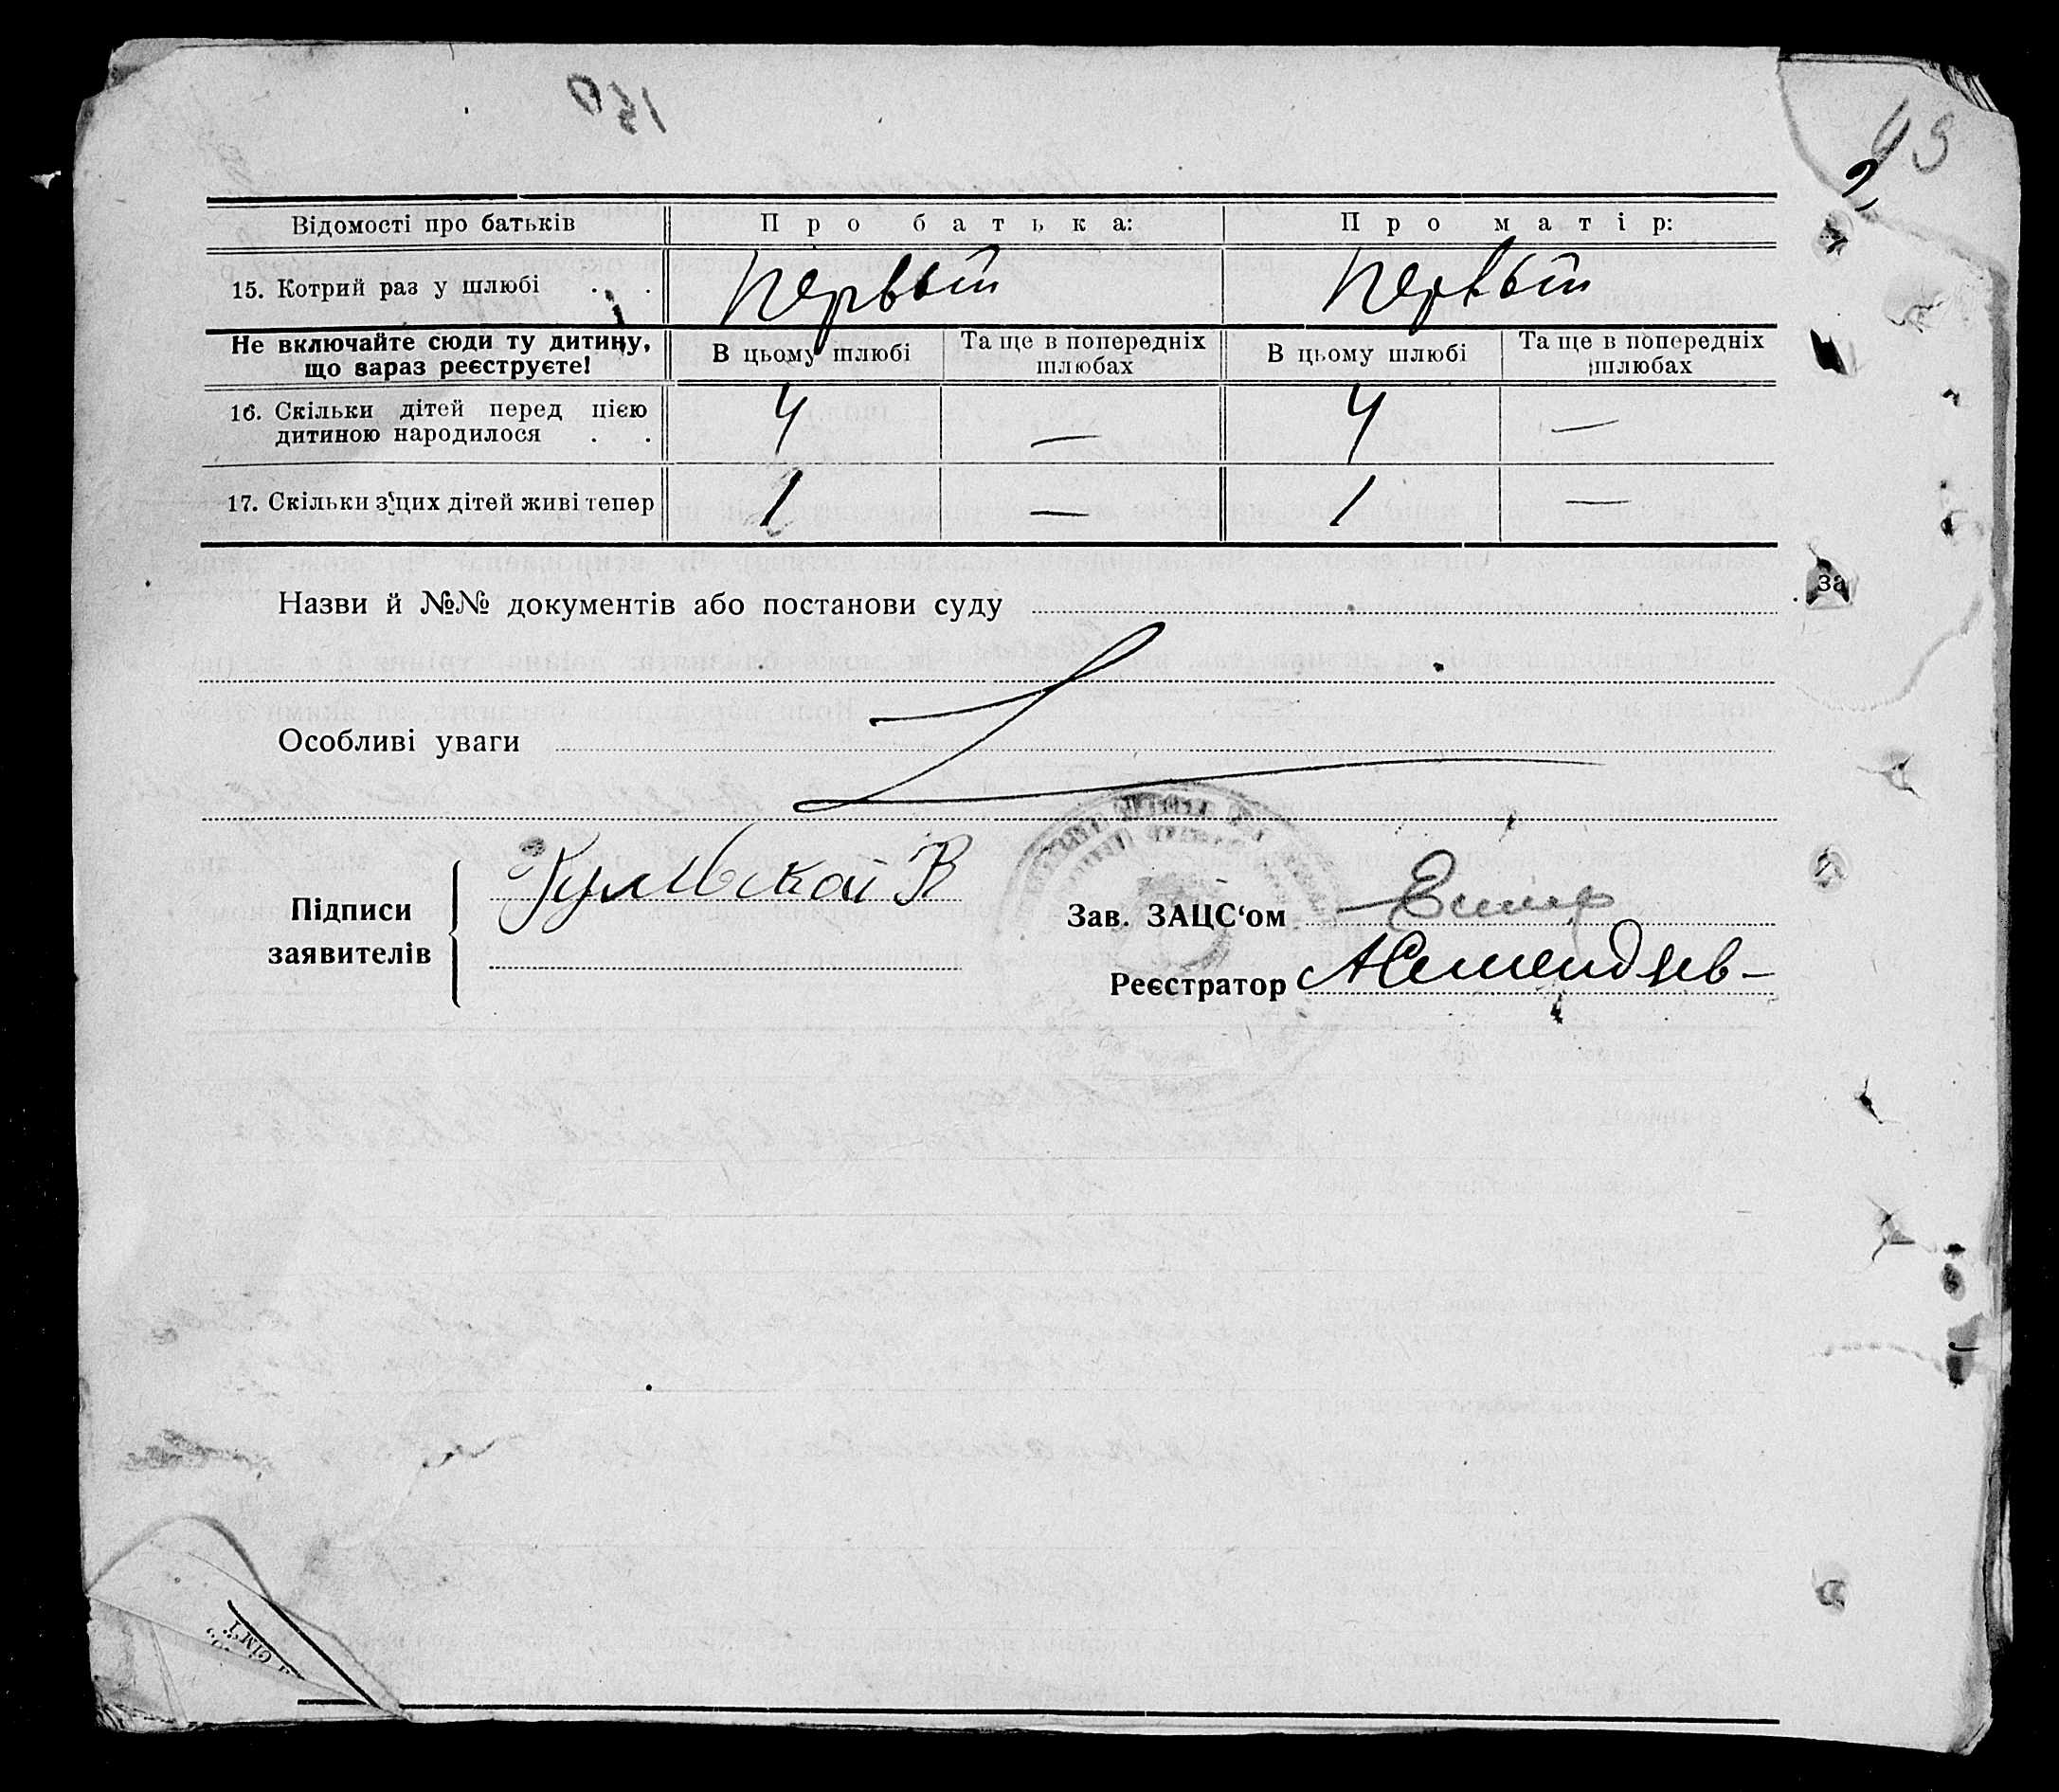 150
93
2
Відомості про батьків
Про батька:
Про матір:
15. Котрий раз у шлюбі . .
первый
первый
Не включайте сюди ту дитину,
що зараз реєструєте!
В цьому шлюбі
Та ще в попередніх
шлюбах
В цьому шлюбі
Та ще в попередніх
шлюбах
16. Скільки дітей перед цією
дитиною народилося . .
4
—
4
—
17. Скільки з цих дітей живі тепер
1
—
1
—
за
Назви й №№ документів або постанови суду
Особливі уваги
Підписи
заявителів
Зав. ЗАЦС'ом
Реєстратор
сім'ї